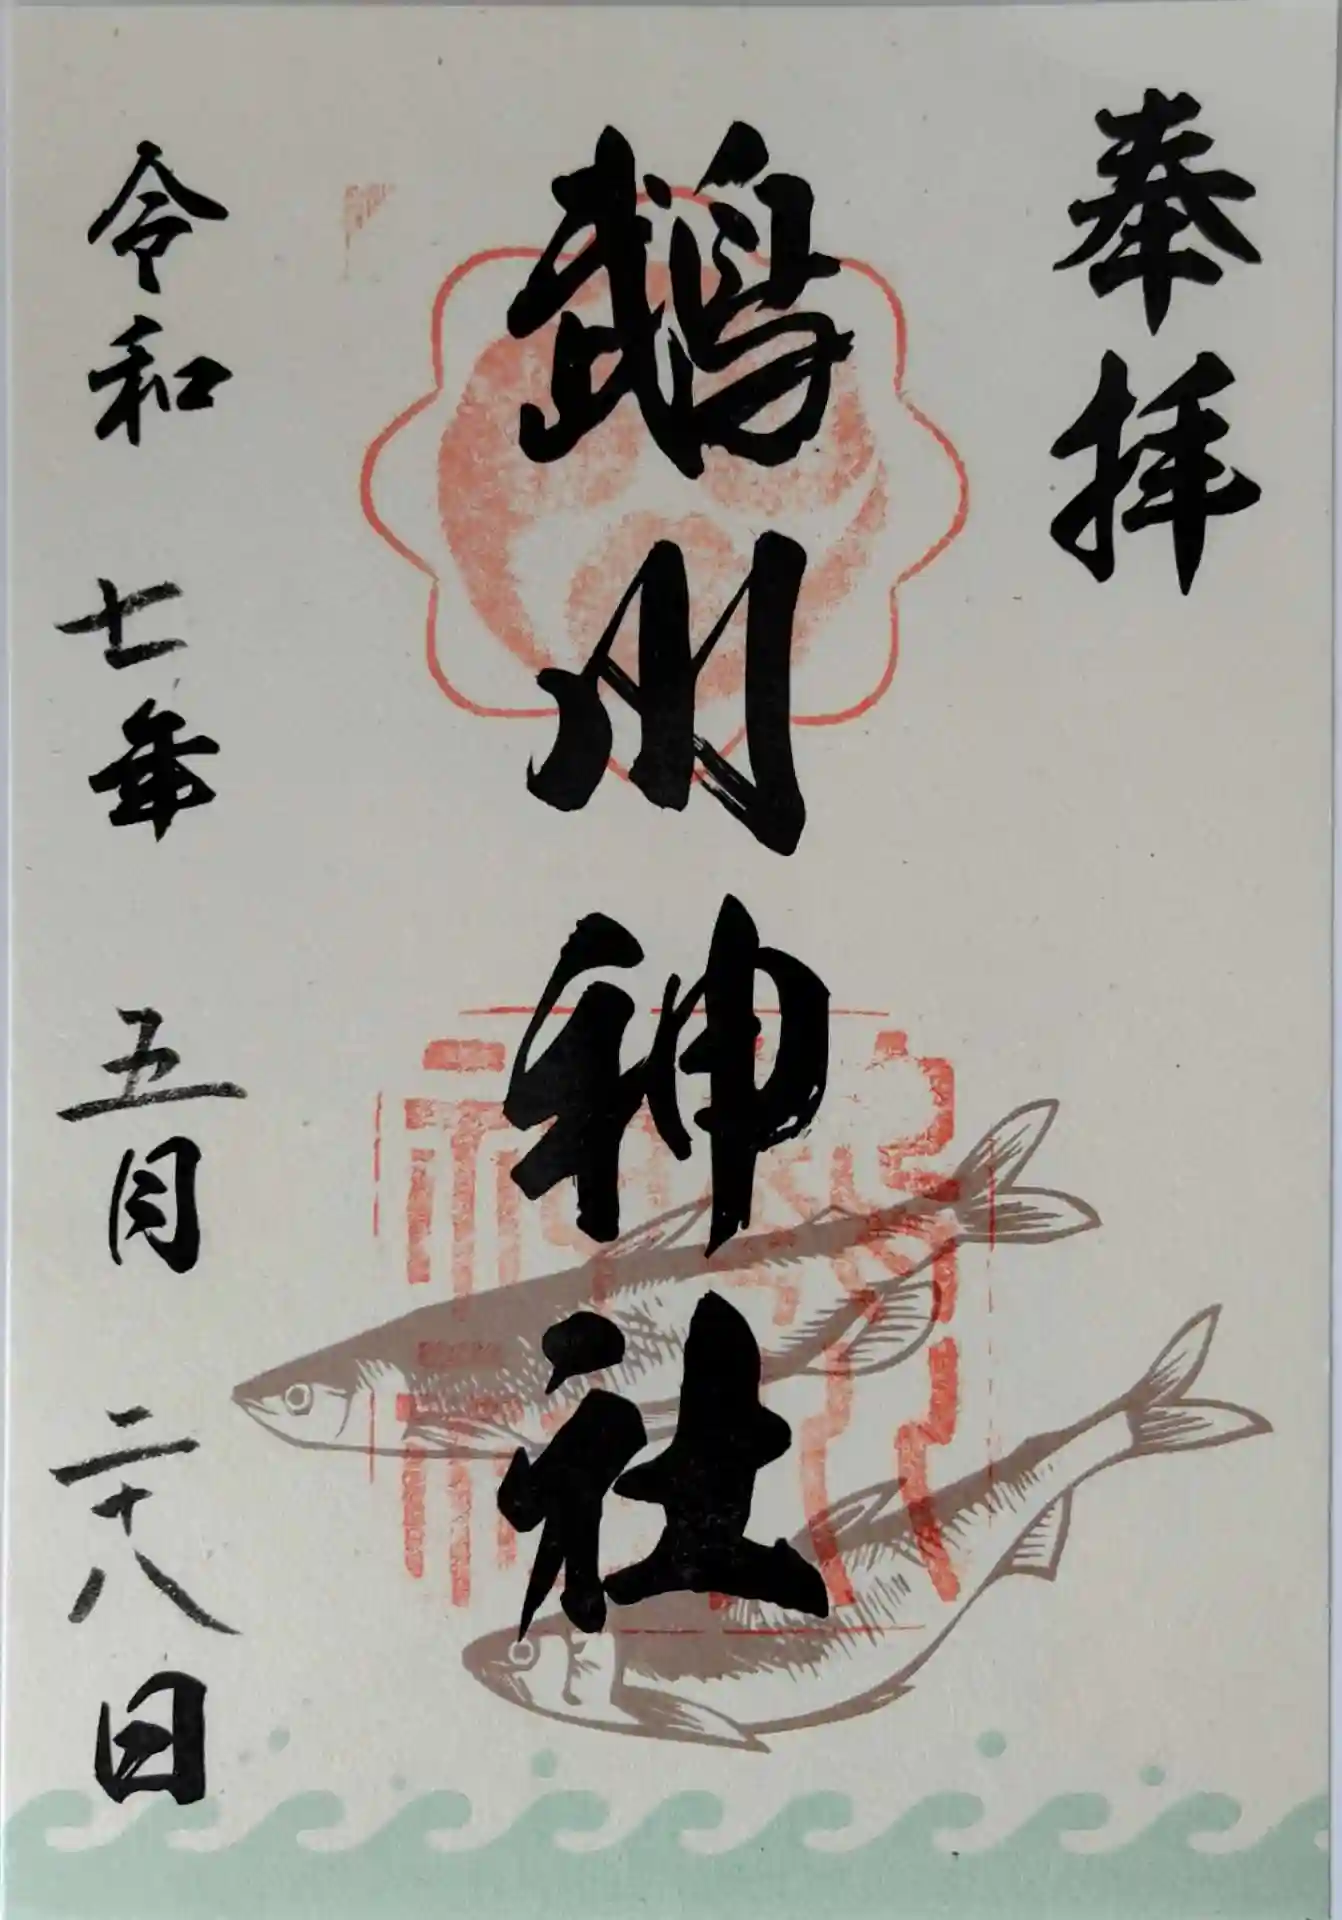 奉拝
鵡川神社
令和七年五月二十八日